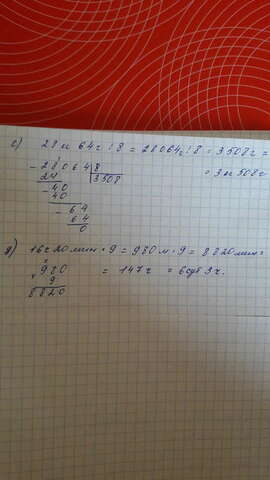 с) 28 кг 64 г : 8 = 28064 г : 8 = 3508 г =
= 3 кг 508 г
- 28064 | 8
24 3508
- 40
40
- 64
64
0
д) 16 ч 20 мин · 9 = 980 м · 9 = 8820 мин =
= 147 ч = 6 сут 3 ч.
× 980
9
8820